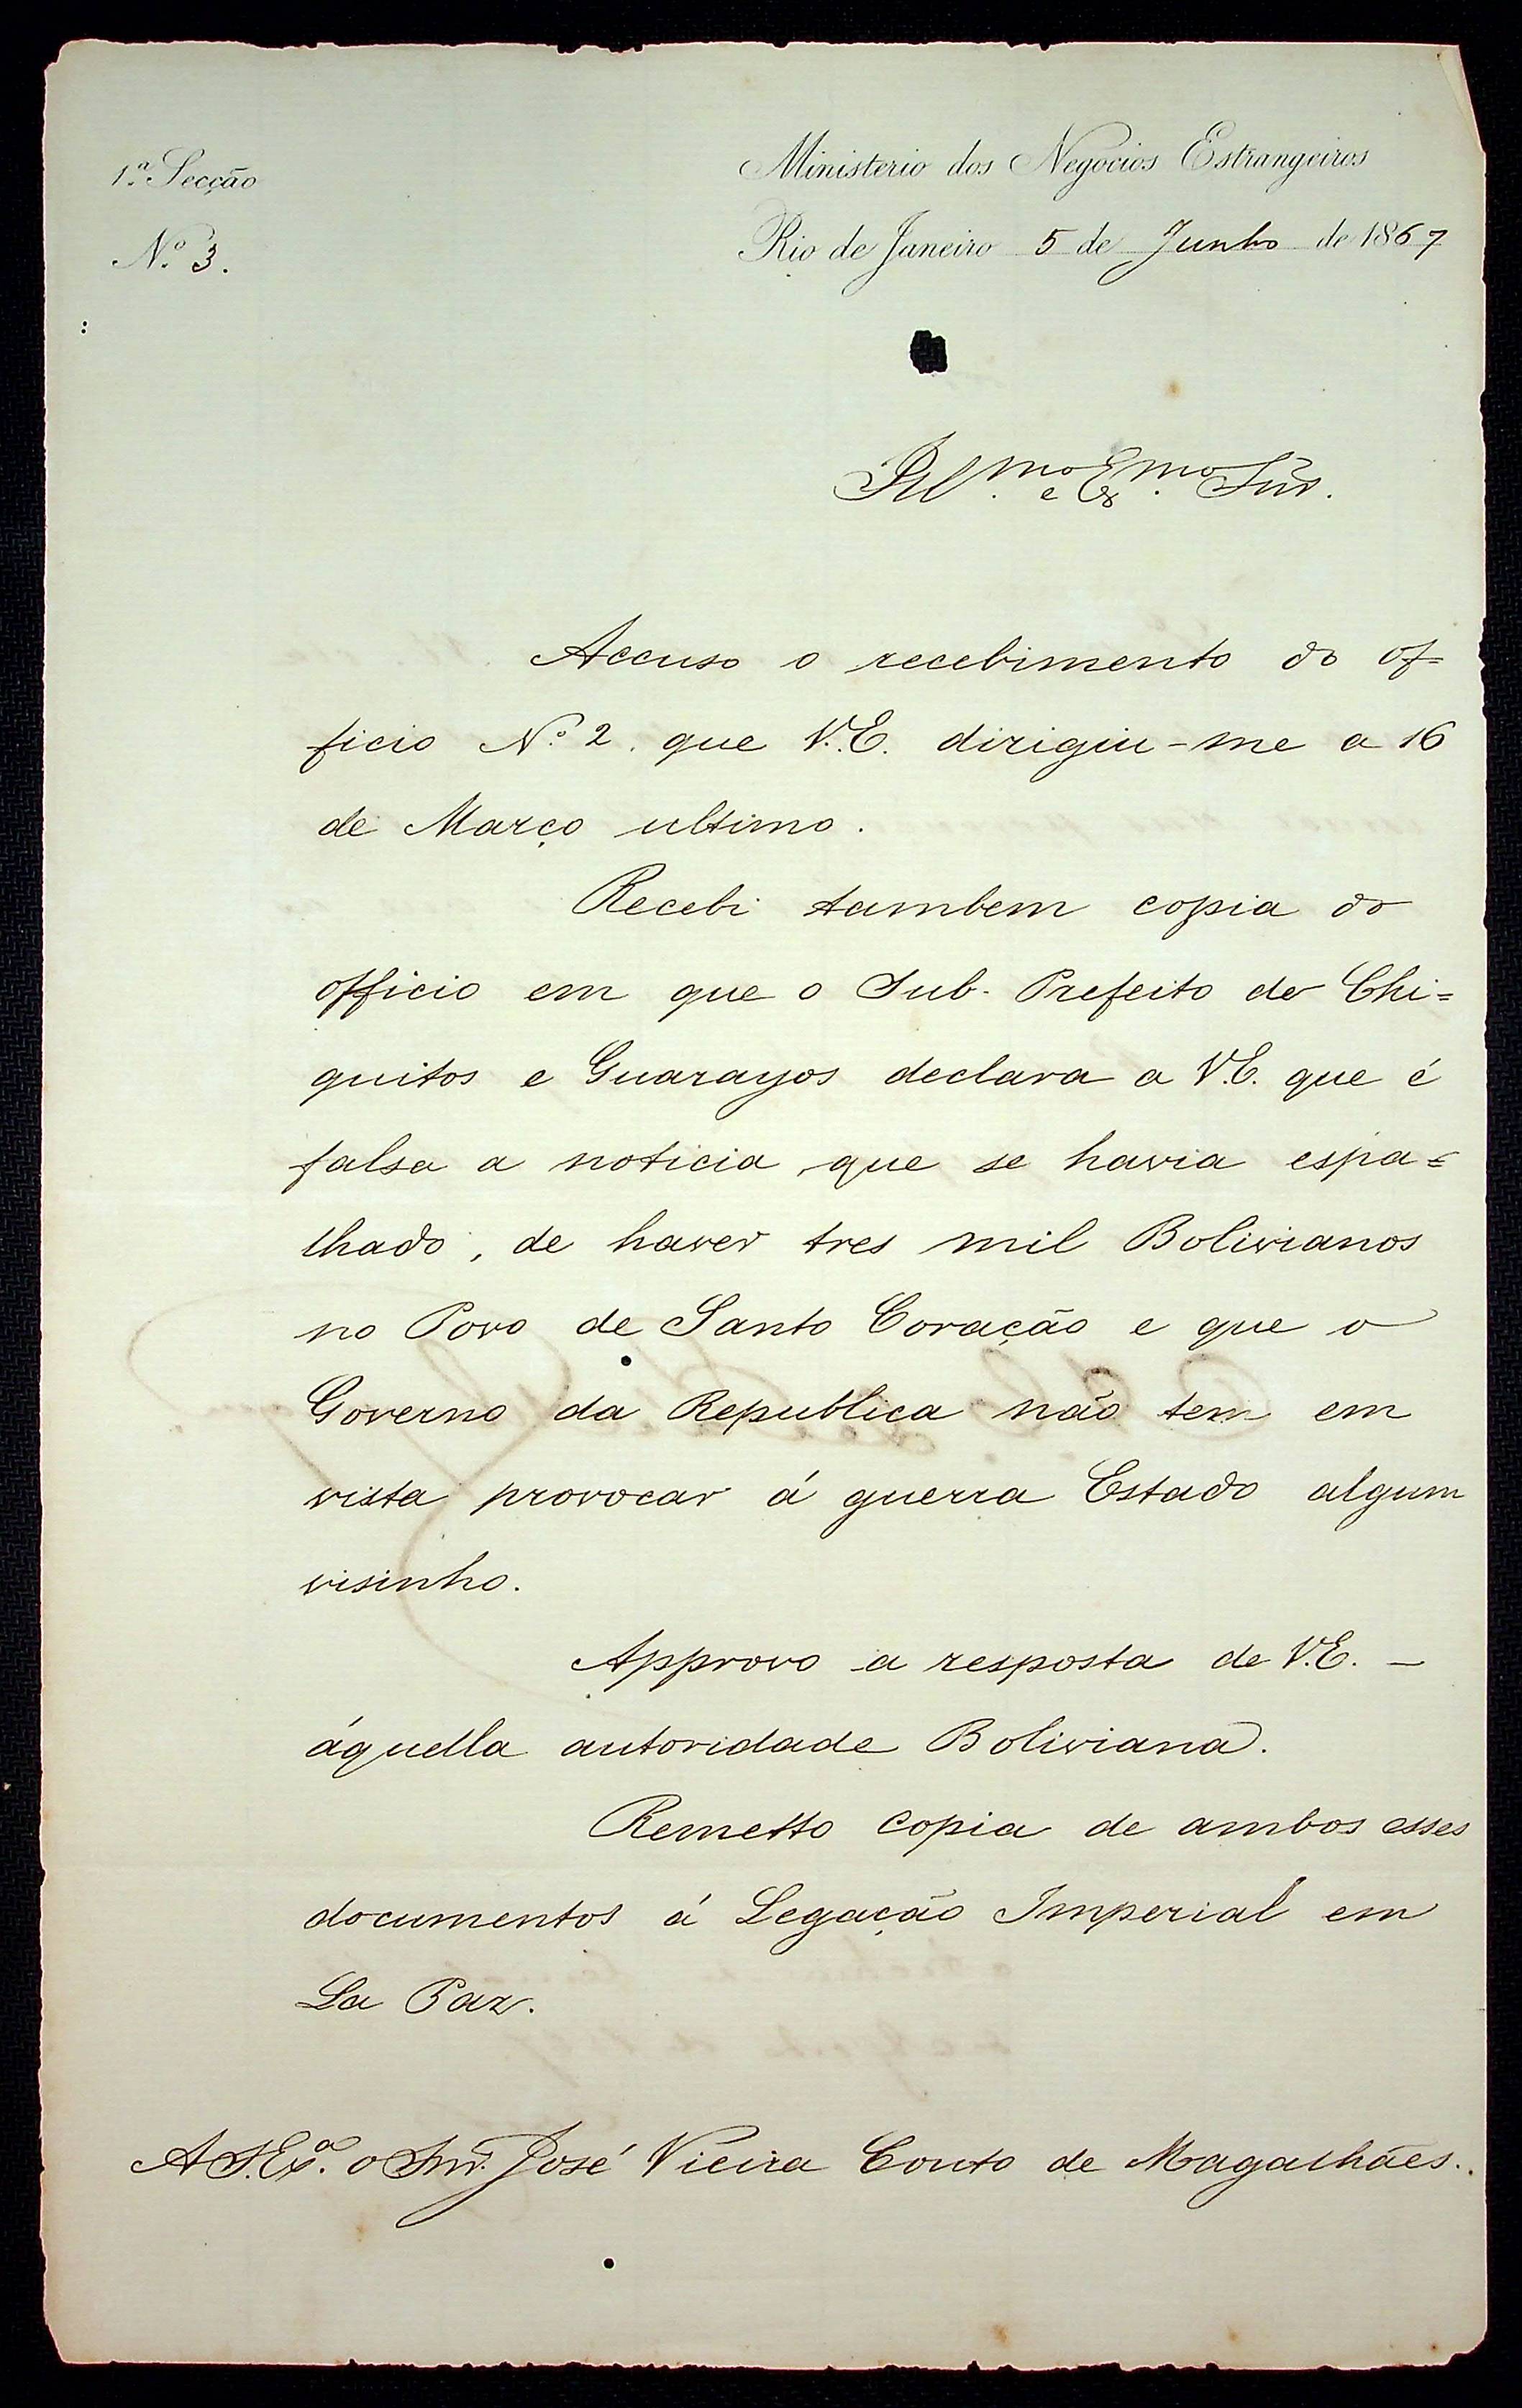 1.ª Secção
N.º 3.
Ministerio dos Negocios Estrangeiros
Rio de Janeiro 5 de Junho de 1867
Ill.mo e Ex.mo Snr.
Accuso o recebimento do of=
ficio N.º 2. que V.E. dirigiu-me a 16
de Março ultimo.
Recebi tambem copia do
officio em que o Sub-Prefeito de Chi=
quitos e Guarayos declara a V.E. que é
falsa a noticia, que se havia espa=
lhado, de haver tres mil Bolivianos
no Povo de Santo Coração e que o
Governo da Republica não tem em
vista provocar á guerra Estado algum
visinho.
Approvo a resposta de V.E. -
áquella autoridade Boliviana.
Remetto copia de ambos esses
documentos á Legação Imperial em
La Paz.
A S. Ex.ª o Snr. José Vieira Couto de Magalhães.